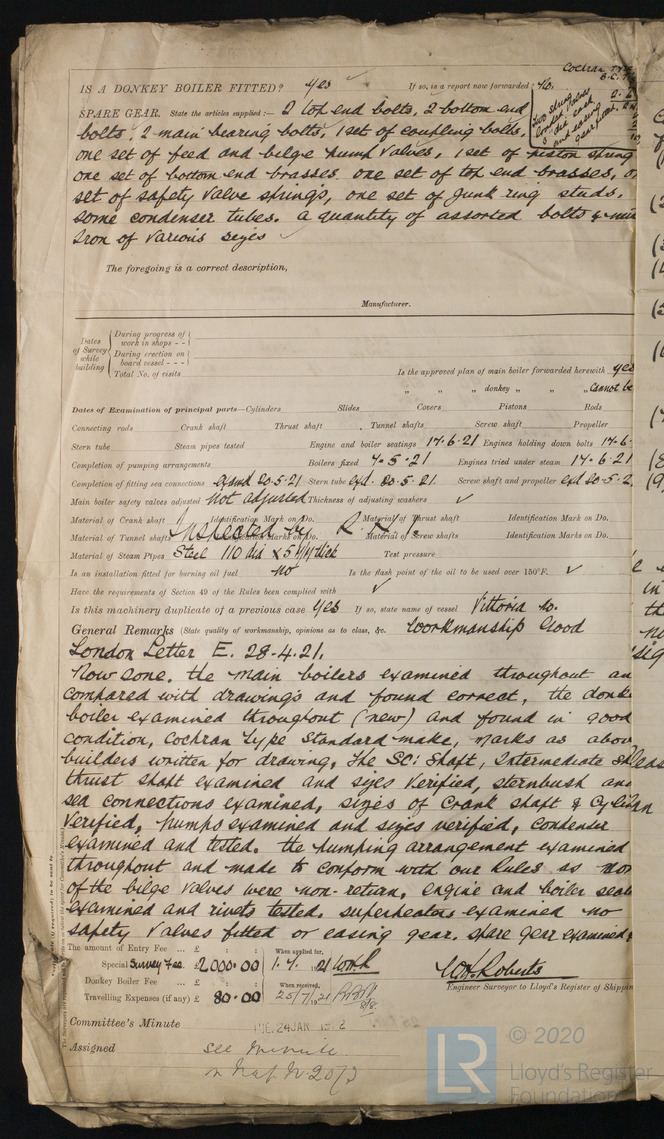 Cochran Type
IS A DONKEY BOILER FITTED? yes If so, is a report now forwarded? No.
SPARE GEAR. State the articles supplied:— 2 top end bolts, 2 bottom end
bolts, 2 main bearing bolts, 1 set of coupling bolts,
one set of feed and belge pump valves, 1 set of piston spring
one set of bottom end brasses, one set of top end brasses,
set of safety valve springs, one set of junk ring studs,
some condenser tubes. a quantity of assorted bolts &
Iron of various sizes
The foregoing is a correct description,
Manufacturer.
Dates of Survey while building
During progress of work in shops - -
During erection on board vessel - - -
Total No. of visits
Is the approved plan of main boiler forwarded herewith yes
" " " donkey " " " Cannot be
Dates of Examination of principal parts—Cylinders Slides Covers Pistons Rods
Connecting rods Crank shaft Thrust shaft Tunnel shafts Screw shaft Propeller
Stern tube Steam pipes tested Engine and boiler seatings 17.6.21 Engines holding down bolts 17.6.
Completion of pumping arrangements Boilers fixed 4.5.21 Engines tried under steam 17.6.21
Completion of fitting sea connections exd 20.5.21 Stern tube exd. 20.5.21. Screw shaft and propeller exd 20.5.2
Main boiler safety valves adjusted Not adjusted Thickness of adjusting washers
Material of Crank shaft Identification Mark on Do. Material of Thrust shaft Identification Mark on Do.
Material of Tunnel shafts Inspected by R. N. Identification Marks on Do. Material of Screw shafts Identification Marks on Do.
Material of Steam Pipes Steel 110 dia x 5 m/m thick Test pressure
Is an installation fitted for burning oil fuel no Is the flash point of the oil to be used over 150°F.
Have the requirements of Section 49 of the Rules been complied with
Is this machinery duplicate of a previous case yes If so, state name of vessel Vittoria
General Remarks (State quality of workmanship, opinions as to class, &c. Workmanship Good
London Letter E. 28.4.21.
Now done. the main boilers examined throughout an
compared with drawings and found correct, the donke
boiler examined throughout (new) and found in good
condition, Cochran type Standard make, marks as abov
builders written for drawing, The Sc: shaft, Intermediate
thrust shaft examined and sizes verified, sternbush and
sea connections examined, sizes of Crank shaft & Cylin
verified, pumps examined and sizes verified, condenser
examined and tested. the pumping arrangement examined
throughout and made to conform with our Rules as
of the bilge valves were non-return, engine and boiler seat
examined and rivets tested. superheaters examined no
safety valves fitted or easing gear. spare gear examined
The amount of Entry Fee ... £ : : When applied for,
Special Survey Fee £2000.00 1.7.21
Donkey Boiler Fee ... £ : : When received,
Travelling Expenses (if any) £ 80.00 25/7/21
Roberts
Engineer Surveyor to Lloyd's Register of Shippin
Committee's Minute TUE. 24 JAN
Assigned see minute
© 2020
LR
Lloyd's Register
Foundation